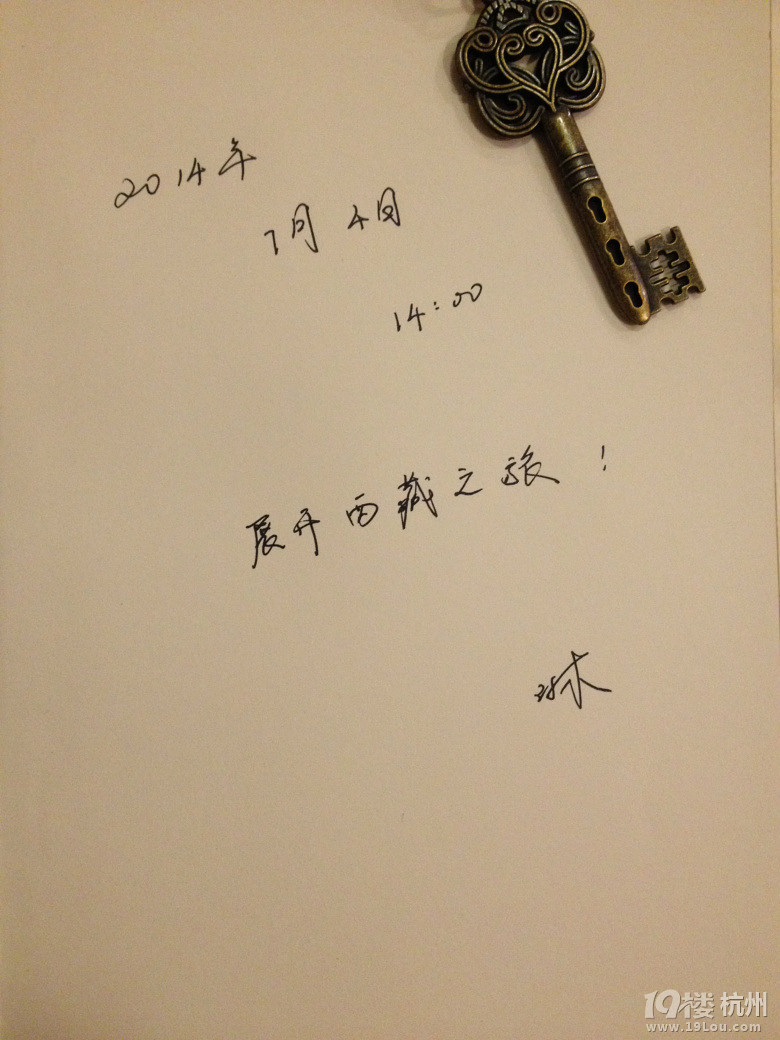 2014年
7月4日
14:00
展开西藏之旅！
琳
19楼 杭州
www.19Lou.com